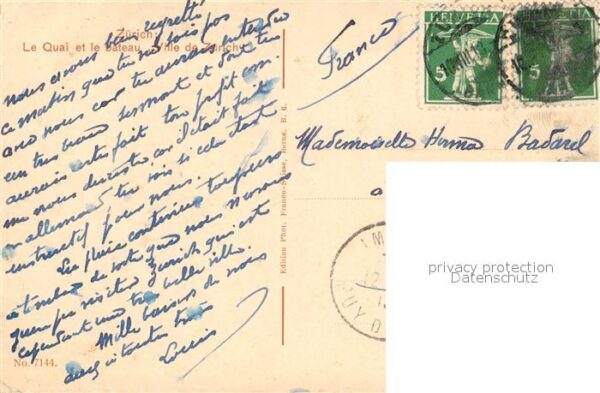 Zürich
Le Quai et le bateau „Ville de Zürich"
nous avons bien regretté
ce matin que tu ne fois pas
avec nous car tu aurais entendu
un très beau sermont et dont tu
aurais certes fait ton profit comme
me nous du reste car il était fait
en allemand tu vois si cela était
instructif pour nous.
La pluie continue toujours
à tomber de sorte que nous n'avons
guère pu visiter Zurich qui est
cependant une très belle ville.
Mille baisers de nous
deux à toutes trois
Louis
No. 7144.
Edition Phot. Franco-Suisse, Berne. B. 6.
France
HELVETIA
5
HELVETIA
5
Mademoiselle Herma Badarel
a
privacy protection
Datenschutz
12
PUY D